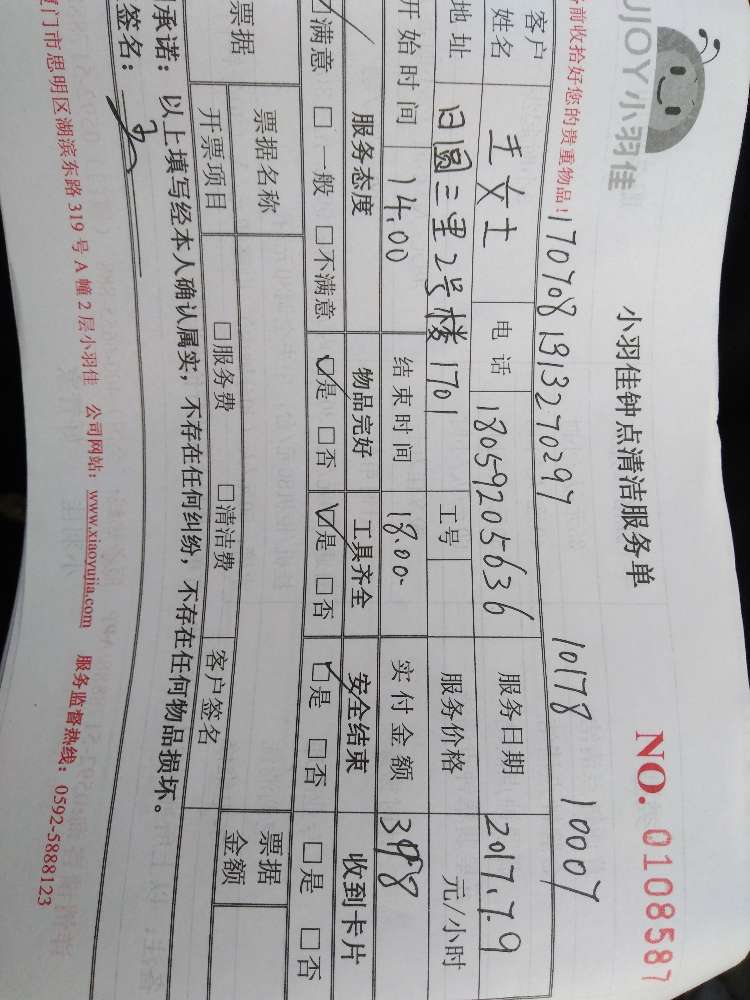 UJOY小羽佳
小羽佳钟点清洁服务单
NO. 0108587
前收拾好您的贵重物品！
170708191327029
10178 1000
客户姓名 王女士 电话 18059205636 服务日期 2017.7.9
地址 日圆二里2号楼1701 工号 服务价格 元/小时
开始时间 14.00 结束时间 18.00 实付金额 398
服务态度 物品完好 工具齐全 安全结束 收到卡片
满意 □一般 □不满意 □是 □否 □是 □否 □是 □否 □是 □否
票据 票据名称 □服务费 □清洁费 客户签名 票据金额
开票项目
承诺：以上填写经本人确认属实，不存在任何纠纷，不存在任何物品损坏。
签名：
厦门市思明区湖滨东路319号A幢2层小羽佳 公司网站：www.xiaoyujia.com 服务监督热线：0592-5888123